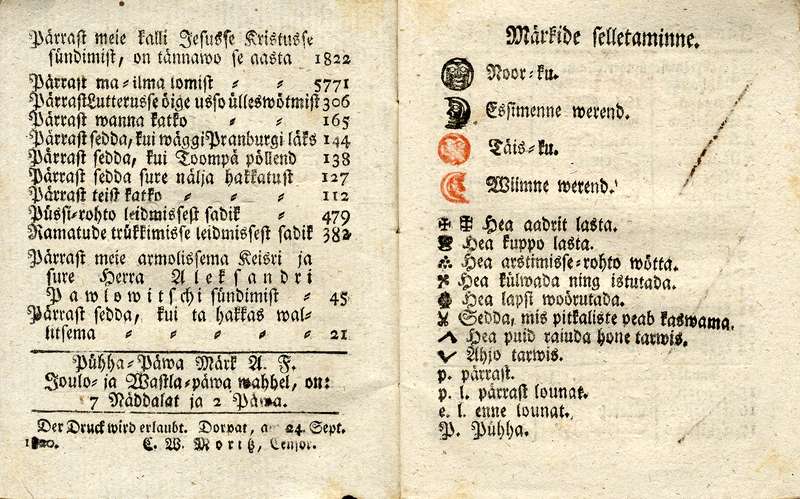 Pärrast meie kalli Jesusse Kristusse
sündimist, on tännawo se aasta 1822
Pärrast ma-ilma lomist „ „ 5771
Pärrast Lutterusse öige usso ülleswötmist 306
Pärrast wanna katko „ „ 165
Pärrast sedda, kui wäggi Pranburgi läks 144
Pärrast sedda, kui Toompä pöllend 138
Pärrast sedda sure nälja hakkatust 127
Pärrast teist katko „ „ „ 112
Püssi-rohto leidmissest sadik „ 479
Ramatude trükkimisse leidmissest sadik 382
Pärrast meie armolissema Keisri ja
sure Herra Aleksandri
Pawlowitschi sündimist „ 45
Pärrast sedda, kui ta hakkas wal-
litsema „ „ „ „ „ 21
Pühha-Päwa Märk A. F.
Joulo- ja Wastla-päwa wahhel, on:
7 Näddalat ja 2 Päwa.
Der Druck wird erlaubt. Dorpat, a 24 Sept.
1820. C. W. Moritz, Censor.
Märkide selletaminne.
Noor-ku.
Essimenne werend.
Täis-ku.
Wiimne werend.
Hea aadrit lasta.
Hea kuppo lasta.
Hea arstimisse-rohto wötta.
Hea külwada ning istutada.
Hea lapsi woörutada.
Sedda, mis pitkaliste peab kaswama.
Hea puid raiuda hone tarwis.
Ahjo tarwis.
p. pärrast.
p. l. pärrast lounat.
e. l. enne lounat.
P. Pühha.